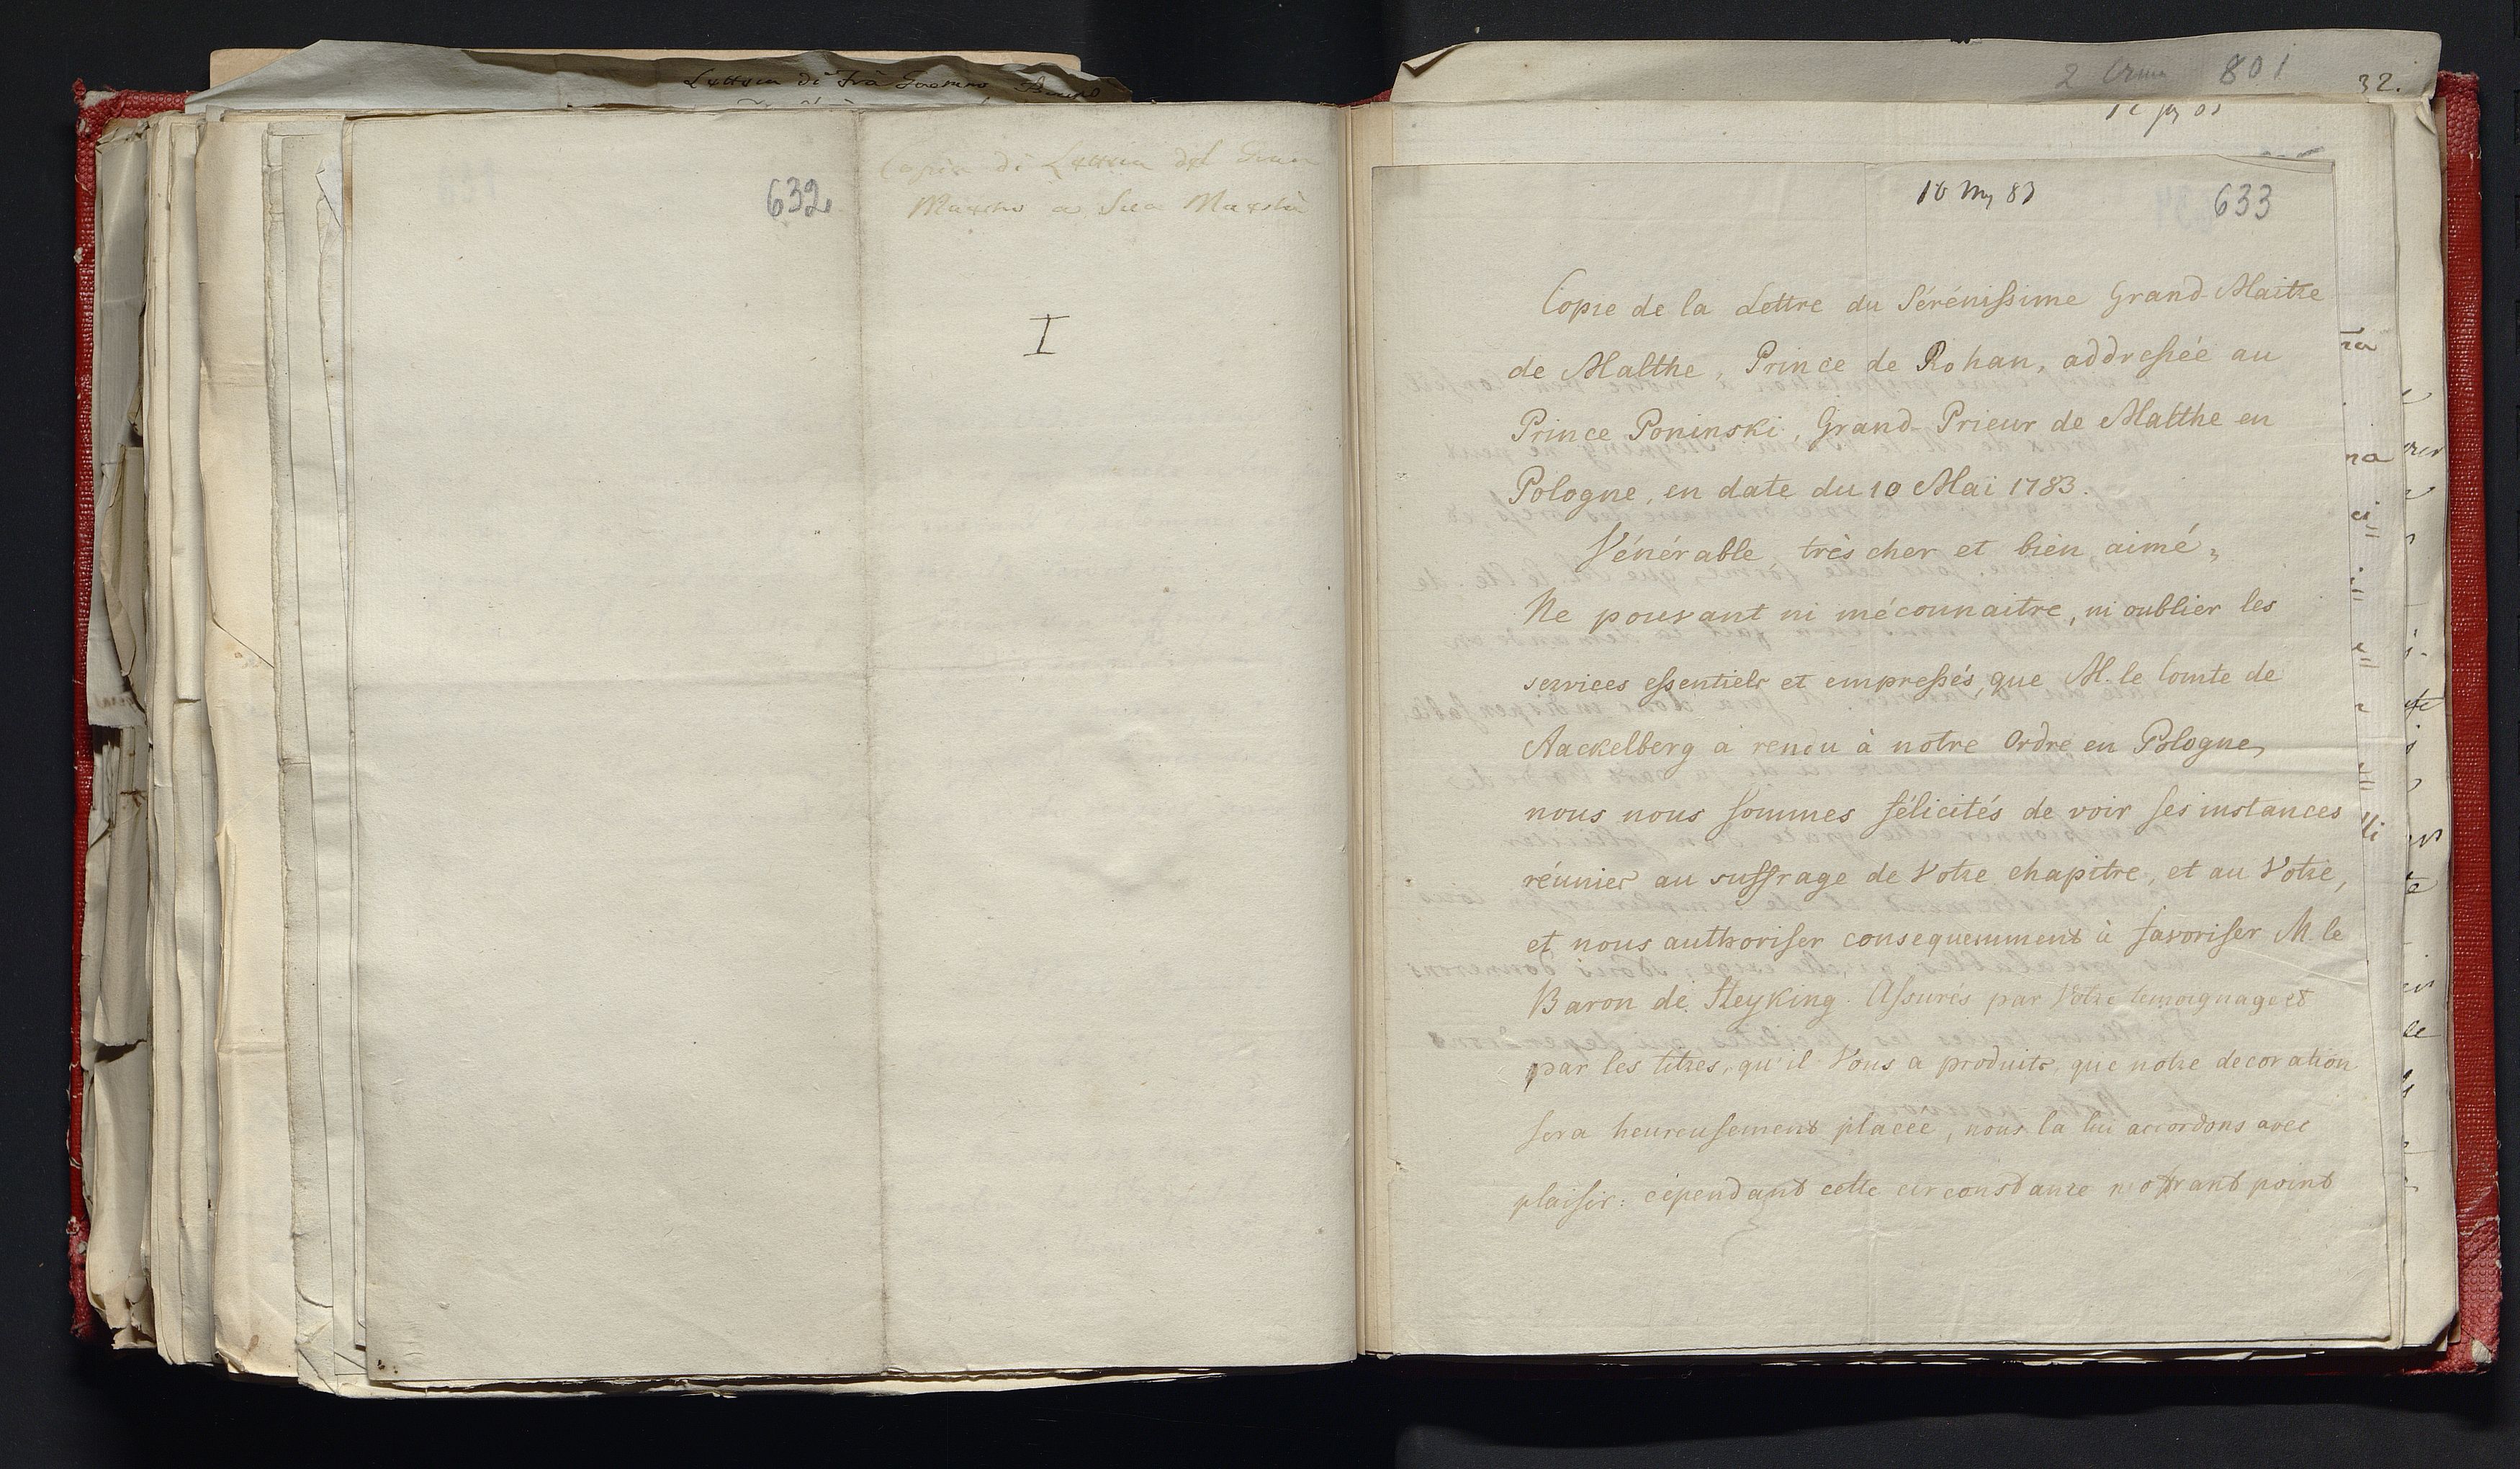 Lettera di frà
632
Copia di Lettera del Gran
Maestro a Sua Maestà
I
801
32.
10 My 83
633
Copie de la Lettre du Sérénissime Grand-Maitre
de Malthe, Prince de Rohan, addressée au
Prince Poninski, Grand-Prieur de Malthe en
Pologne, en date du 10 Mai 1783.
Vénérable très cher et bien aimé,
Ne pouvant ni méconnaitre, ni oublier les
services essentiels et empressés, que M. le Comte de
Stackelberg a rendu à notre Ordre en Pologne,
nous nous sommes félicités de voir ses instances
réunies au suffrage de Votre chapitre, et au Votre,
et nous authoriser consequemment à favoriser M. le
Baron de Heyking. Assurés par Votre temoignage et
par les titres, qu'il Vous a produits, que notre decoration
sera heureusement placée, nous la lui accordons avec
plaisir: cependant cette circonstance n'offrant point